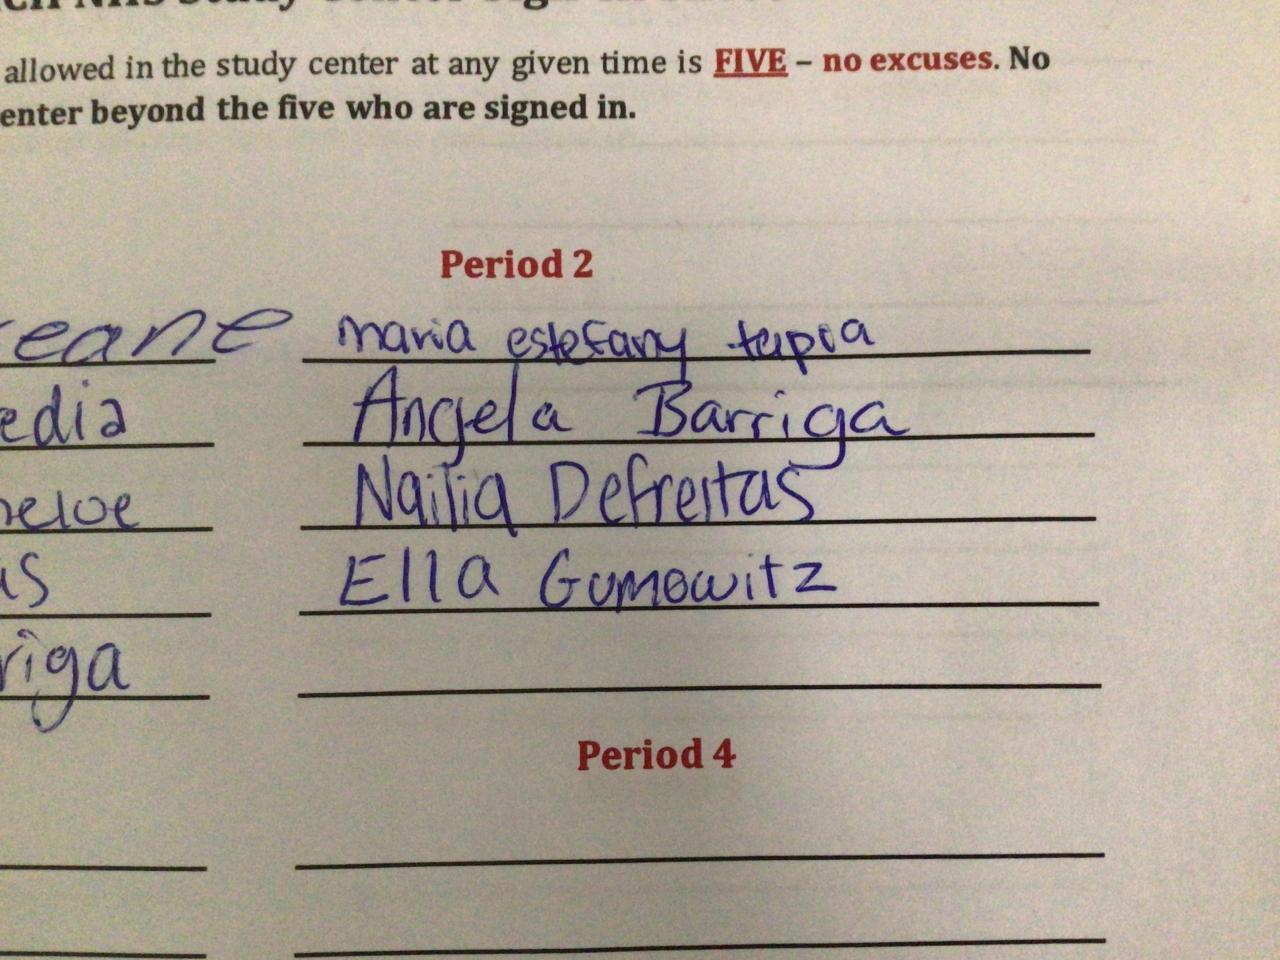 allowed in the study center at any given time is FIVE – no excuses. No
enter beyond the five who are signed in.
Period 2
eane
maria estefany tapia
edia
Angela Barriga
neloe
Nailia Defreitas
as
Ella Gumowitz
riga
Period 4